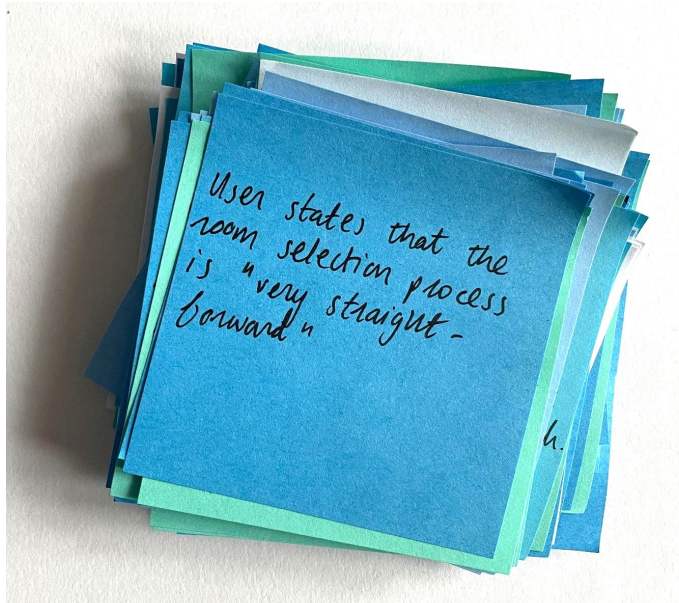 User states that the
room selection process
is "very straight-
forward"
h.